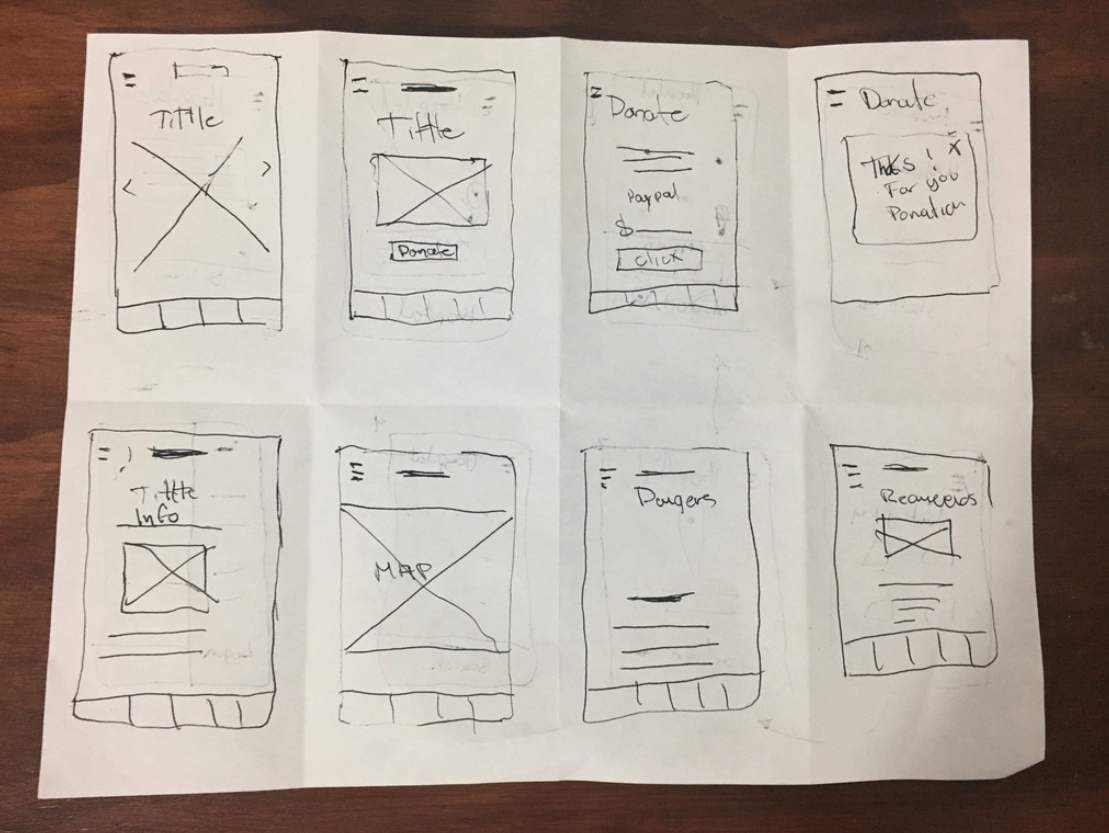 Tittle
Tittle
Donate
Donate
Paypal
$
click
Donate
X
For you
Donation
Tittle
Info
MAP
Dangers